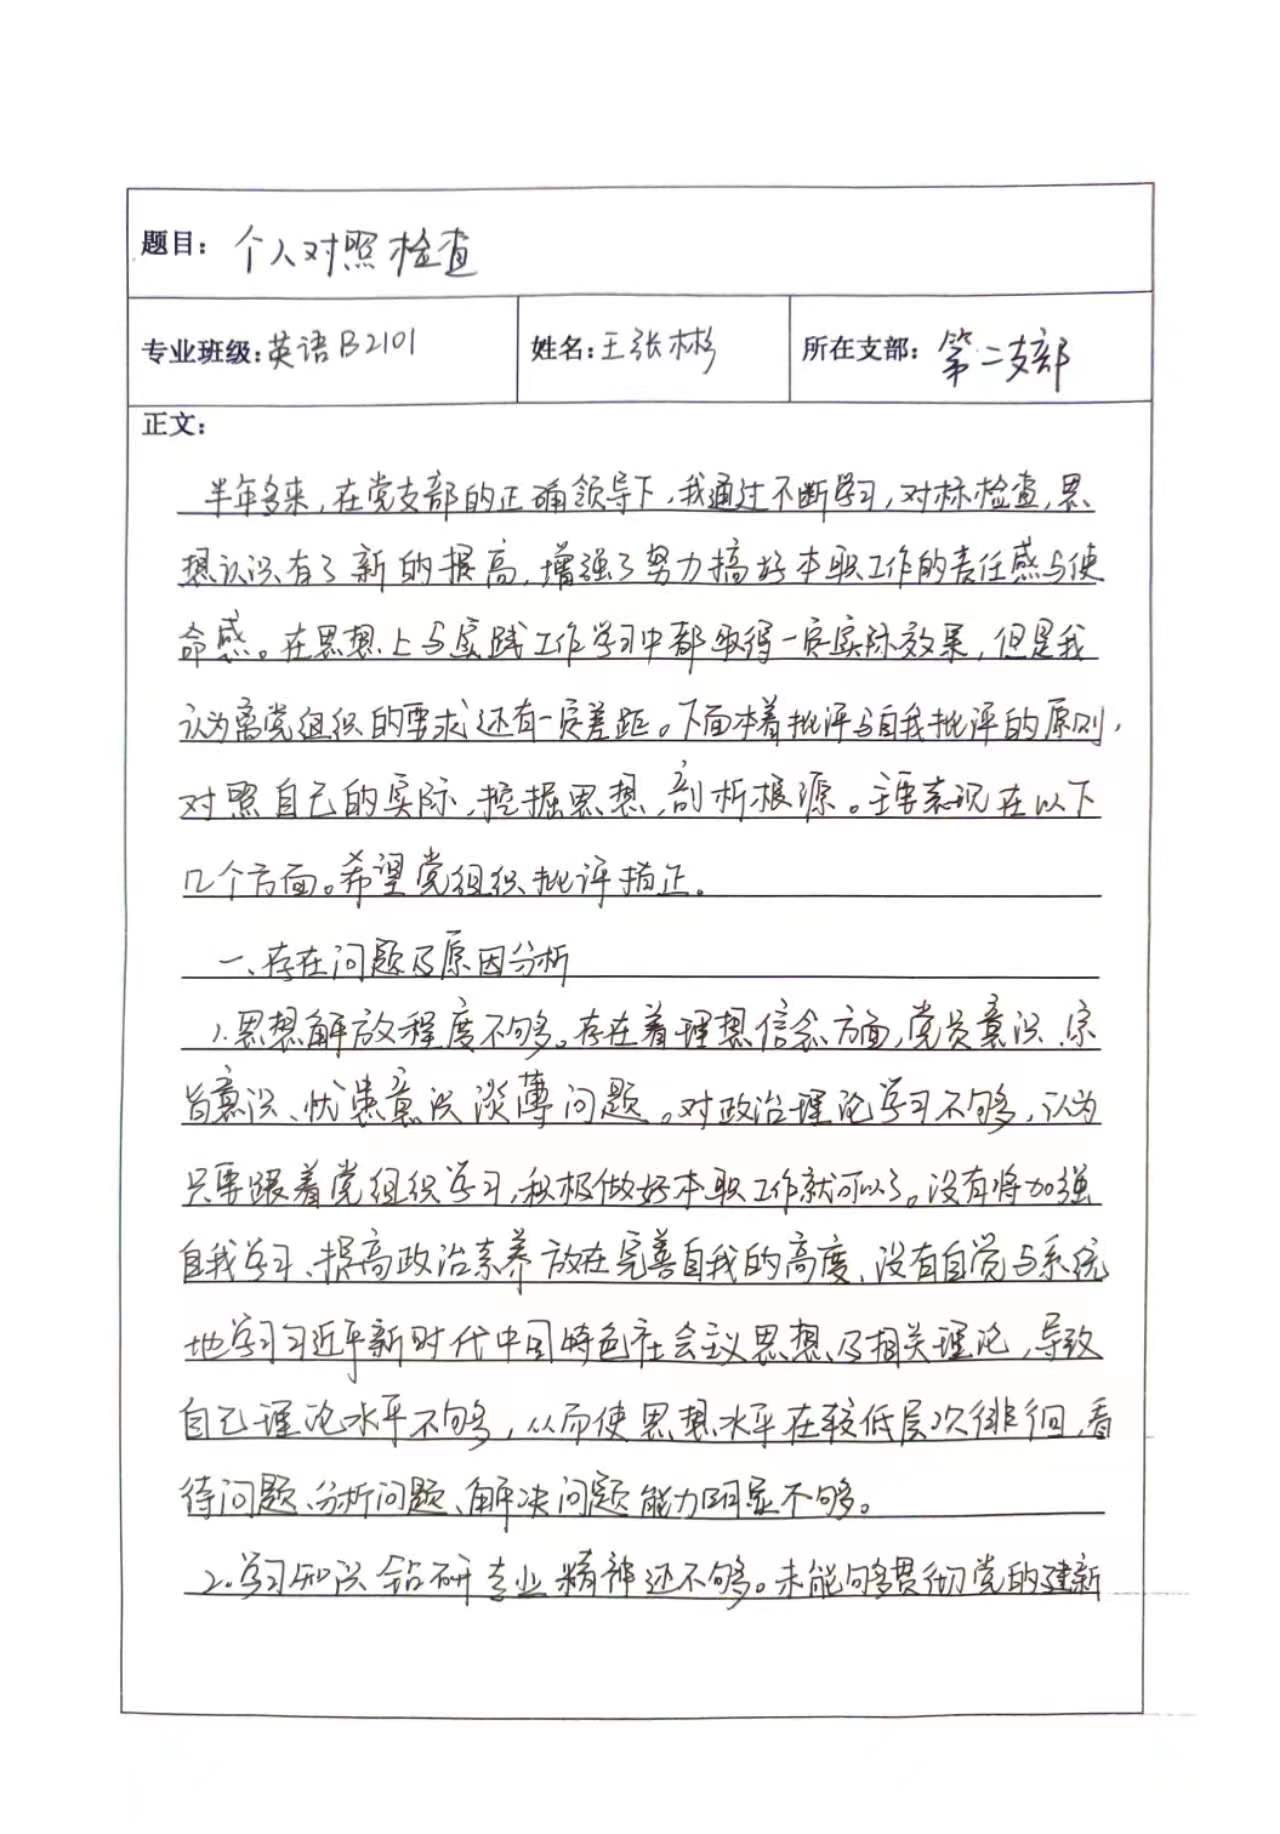 题目：个人对照检查
专业班级：英语B2101 姓名：王张彬 所在支部：第二支部
正文：
半年多来，在党支部的正确领导下，我通过不断学习，对标检查，思
想认识有了新的提高，增强了努力搞好本职工作的责任感与使
命感。在思想上与实践工作学习中都取得一定实际效果，但是我
认为离党组织的要求还有一定差距。下面本着批评与自我批评的原则，
对照自己的实际，挖掘思想，剖析根源。主要表现在以下
几个方面。希望党组织批评指正。
一、存在问题及原因分析
1.思想解放程度不够。存在着理想信念方面，党员意识、宗
旨意识、忧患意识淡薄问题。对政治理论学习不够，认为
只要跟着党组织学习，积极做好本职工作就可以了。没有将加强
自我学习、提高政治素养放在完善自我的高度、没有自觉与系统
地学习习近平新时代中国特色社会主义思想及相关理论，导致
自己理论水平不够，从而使思想水平在较低层次徘徊，看
待问题、分析问题、解决问题能力明显不够。
2.学习知识钻研专业精神还不够。未能够贯彻党的建新